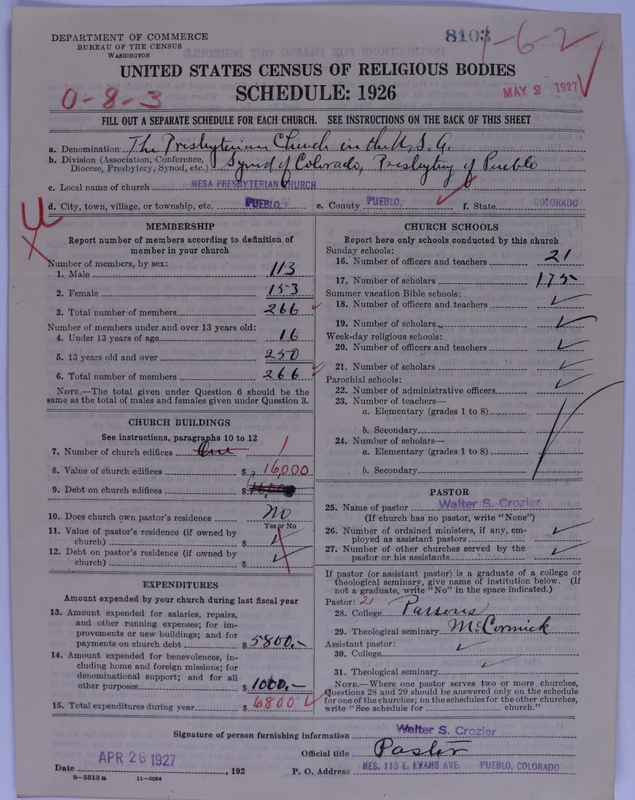 DEPARTMENT OF COMMERCE
BUREAU OF THE CENSUS
WASHINGTON
8103
1-6-2
UNITED STATES CENSUS OF RELIGIOUS BODIES
SCHEDULE: 1926
0-8-3
MAY 2 1927
FILL OUT A SEPARATE SCHEDULE FOR EACH CHURCH. SEE INSTRUCTIONS ON THE BACK OF THIS SHEET
a. Denomination The Presbyterian Church in the U.S.A.
b. Division (Association, Conference, Diocese, Presbytery, Synod, etc.) Synod of Colorado, Presbytery of Pueblo
c. Local name of church MESA PRESBYTERIAN CHURCH
d. City, town, village, or township, etc. PUEBLO, e. County PUEBLO, f. State COLORADO
U
MEMBERSHIP
Report number of members according to definition of
member in your church
Number of members, by sex:
1. Male 113
2. Female 153
3. Total number of members 266
Number of members under and over 13 years old:
4. Under 13 years of age 16
5. 13 years old and over 250
6. Total number of members 266
NOTE.—The total given under Question 6 should be
same as the total of males and females given under Question 3.
CHURCH BUILDINGS
See instructions, paragraphs 10 to 12
7. Number of church edifices One 1
8. Value of church edifices $ 16,000
9. Debt on church edifices $
10. Does church own pastor's residence No
Yes or No
11. Value of pastor's residence (if owned by
church) $ ✓
12. Debt on pastor's residence (if owned by
church) $ ✓
EXPENDITURES
Amount expended by your church during last fiscal year
13. Amount expended for salaries, repairs,
and other running expenses; for im-
provements or new buildings; and for
payments on church debt $ 5800.-
14. Amount expended for benevolences, in-
cluding home and foreign missions; for
denominational support; and for all
other purposes $ 1000.-
15. Total expenditures during year $ 6800
CHURCH SCHOOLS
Report here only schools conducted by this church
Sunday schools:
16. Number of officers and teachers 21
17. Number of scholars 175
Summer vacation Bible schools:
18. Number of officers and teachers ✓
19. Number of scholars ✓
Week-day religious schools:
20. Number of officers and teachers ✓
21. Number of scholars ✓
Parochial schools:
22. Number of administrative officers ✓
23. Number of teachers—
a. Elementary (grades 1 to 8)
b. Secondary
24. Number of scholars—
a. Elementary (grades 1 to 8)
b. Secondary
PASTOR
25. Name of pastor Walter S. Crozier
(If church has no pastor, write "None")
26. Number of ordained ministers, if any, em-
ployed as assistant pastors ✓
27. Number of other churches served by the
pastor or his assistants ✓
If pastor (or assistant pastor) is a graduate of a college or
theological seminary, give name of institution below. (If
not a graduate, write "No" in the space indicated.)
Pastor: 2
28. College Parsons
29. Theological seminary McCormick
Assistant pastor:
30. College ✓
31. Theological seminary ✓
NOTE.—Where one pastor serves two or more churches,
Questions 28 and 29 should be answered only on the schedule
for one of the churches; on the schedules for the other churches,
write "See schedule for church."
Signature of person furnishing information Walter S. Crozier
Official title Pastor
Date APR 26 1927, 192 P. O. Address RES. 113 E. EVANS AVE. PUEBLO, COLORADO
8-5513a 11-9034